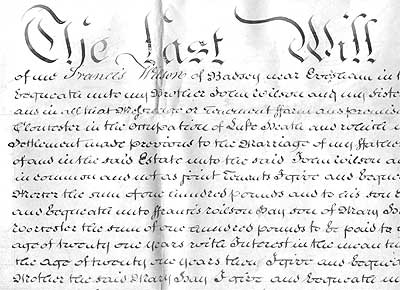 The Last Will
of me Francis Wilson of Badsey near Evesham in t
Bequeath unto my Brother John Wilson and my Siste
and in all that Messuage or Tenement ffarm and premise
Gloucester in the Occupation of Luke Heath and which
Settlement made previous to the Marriage of my ffather
of and in the said Estate unto the said John Wilson a
in common and not as joint Tenants I give and Beque
Morter the sum of four hundred pounds and to his son
and Bequeath unto ffrancis Wilson Day son of Mary
Worcester the sum of one hundred pounds to be paid to
age of twenty one years with Interest in the mean ti
the age of twenty one years then I give and Bequea
Mother the said Mary Day I give and Bequeath u